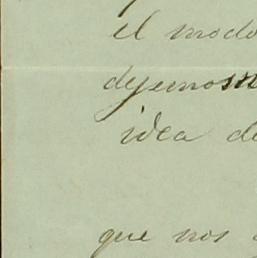 el modo
dejemos
idea de
que nos